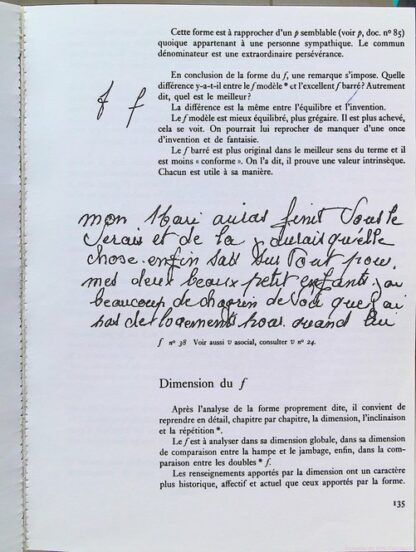 Cette forme est à rapprocher d'un p semblable (voir p, doc. n° 85)
quoique appartenant à une personne sympathique. Le commun
dénominateur est une extraordinaire persévérance.
En conclusion de la forme du f, une remarque s'impose. Quelle
différence y-a-t-il entre le f modèle * et l'excellent f barré? Autrement
dit, quel est le meilleur?
f f
La différence est la même entre l'équilibre et l'invention.
Le f modèle est mieux équilibré, plus grégaire. Il est plus achevé,
cela se voit. On pourrait lui reprocher de manquer d'une once
d'invention et de fantaisie.
Le f barré est plus original dans le meilleur sens du terme et il
est moins « conforme ». On l'a dit, il prouve une valeur intrinsèque.
Chacun est utile à sa manière.
mon Mari auras finit
Serais et de la durais qu'elle
chose. enfin sas sur Tout pour
mes deux beaux petit enfants. j ai
beaucoup de chagrin de que j ai
pas des logements pour. quand
f n° 38 Voir aussi v asocial, consulter v n° 24.
Dimension du f
Après l'analyse de la forme proprement dite, il convient de
reprendre en détail, chapitre par chapitre, la dimension, l'inclinaison
et la répétition *.
Le f est à analyser dans sa dimension globale, dans sa dimension
de comparaison entre la hampe et le jambage, enfin, dans la com-
paraison entre les doubles * f.
Les renseignements apportés par la dimension ont un caractère
plus historique, affectif et actuel que ceux apportés par la forme.
135